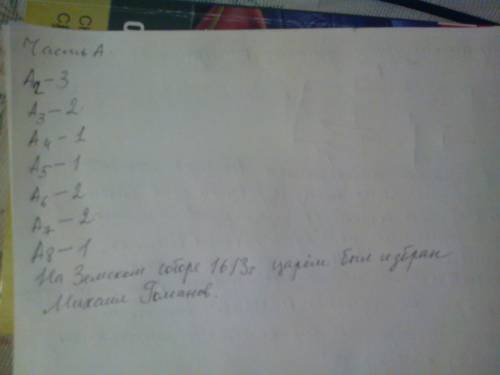 Часть А
А2 – 3
А3 – 2
А4 – 1
А5 – 1
А6 – 2
А7 – 2
А8 – 1
На Земском соборе 1613г царём был избран
Михаил Романов.